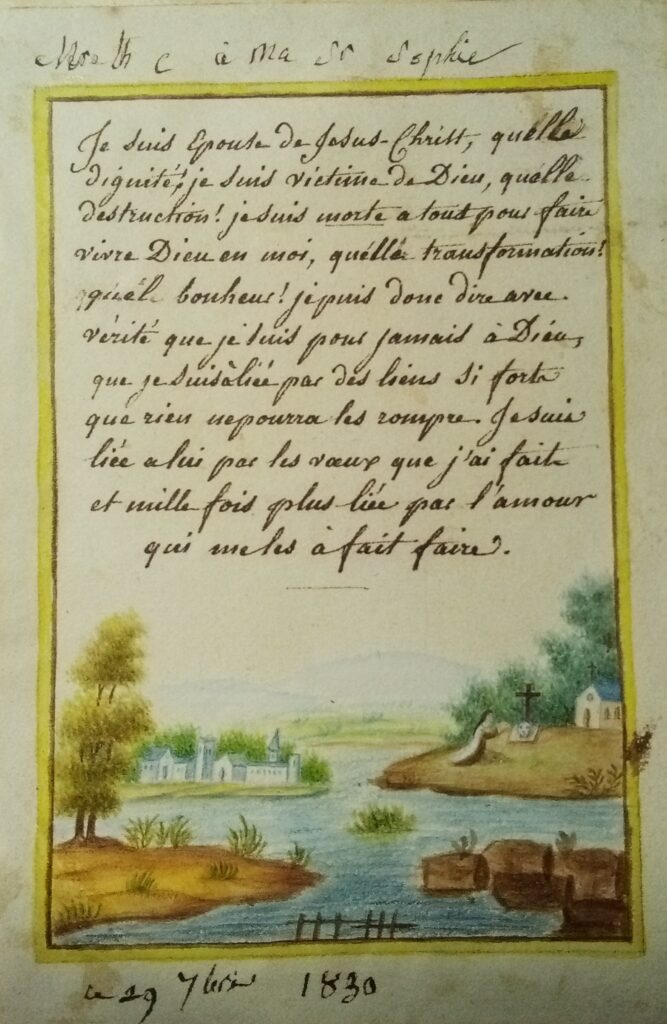 à ma Sr Sophie
Je suis Epouse de Jesus-Christ, quélle
dignité! je suis victime de Dieu, quélle
destruction! je suis morte a tout pour faire
vivre Dieu en moi, quélle transformation!
quél bonheur! je puis donc dire avec
vérité que je suis pour jamais à Diéu,
que je suis liée par des liens si forts
que rien ne pourra les rompre. Je suis
liée a lui par les vœux que j'ai fait
et mille fois plus liée par l'amour
qui me les à fait faire.
ce 29 7bre 1830